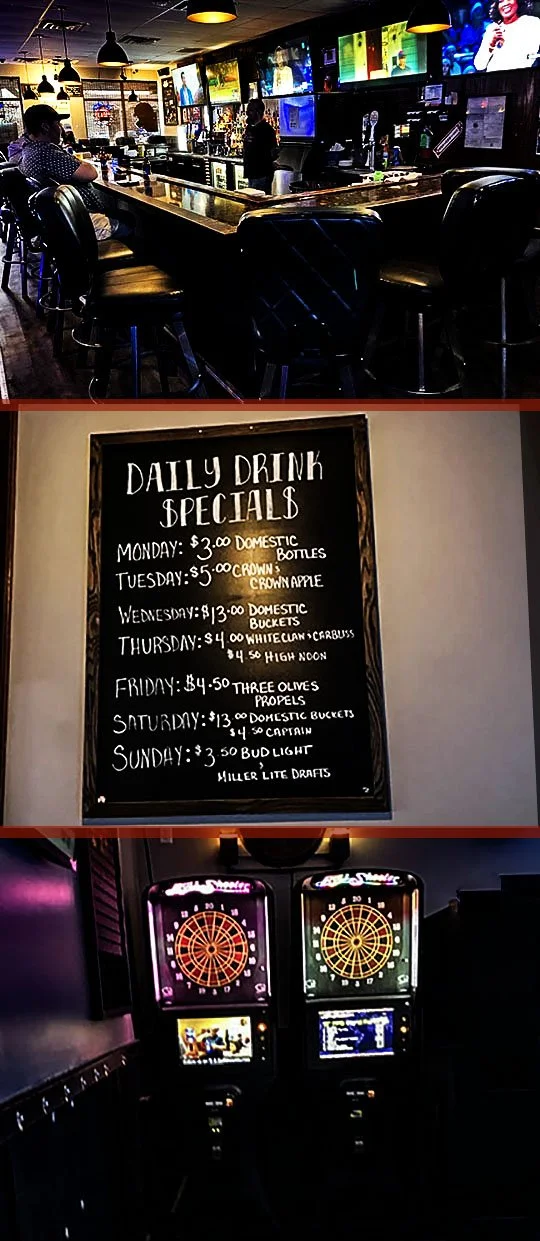 DAILY DRINK
$PECIAL$
MONDAY: $3.00 DOMESTIC
BOTTLES
TUESDAY: $5.00 CROWN &
CROWN APPLE
WEDNESDAY: $13.00 DOMESTIC
BUCKETS
THURSDAY: $4.00 WHITECLAW & CARBLISS
$4.50 HIGH NOON
FRIDAY: $4.50 THREE OLIVES
PROPELS
SATURDAY: $13.00 DOMESTIC BUCKETS
$4.50 CAPTAIN
SUNDAY: $3.50 BUD LIGHT
&
MILLER LITE DRAFTS